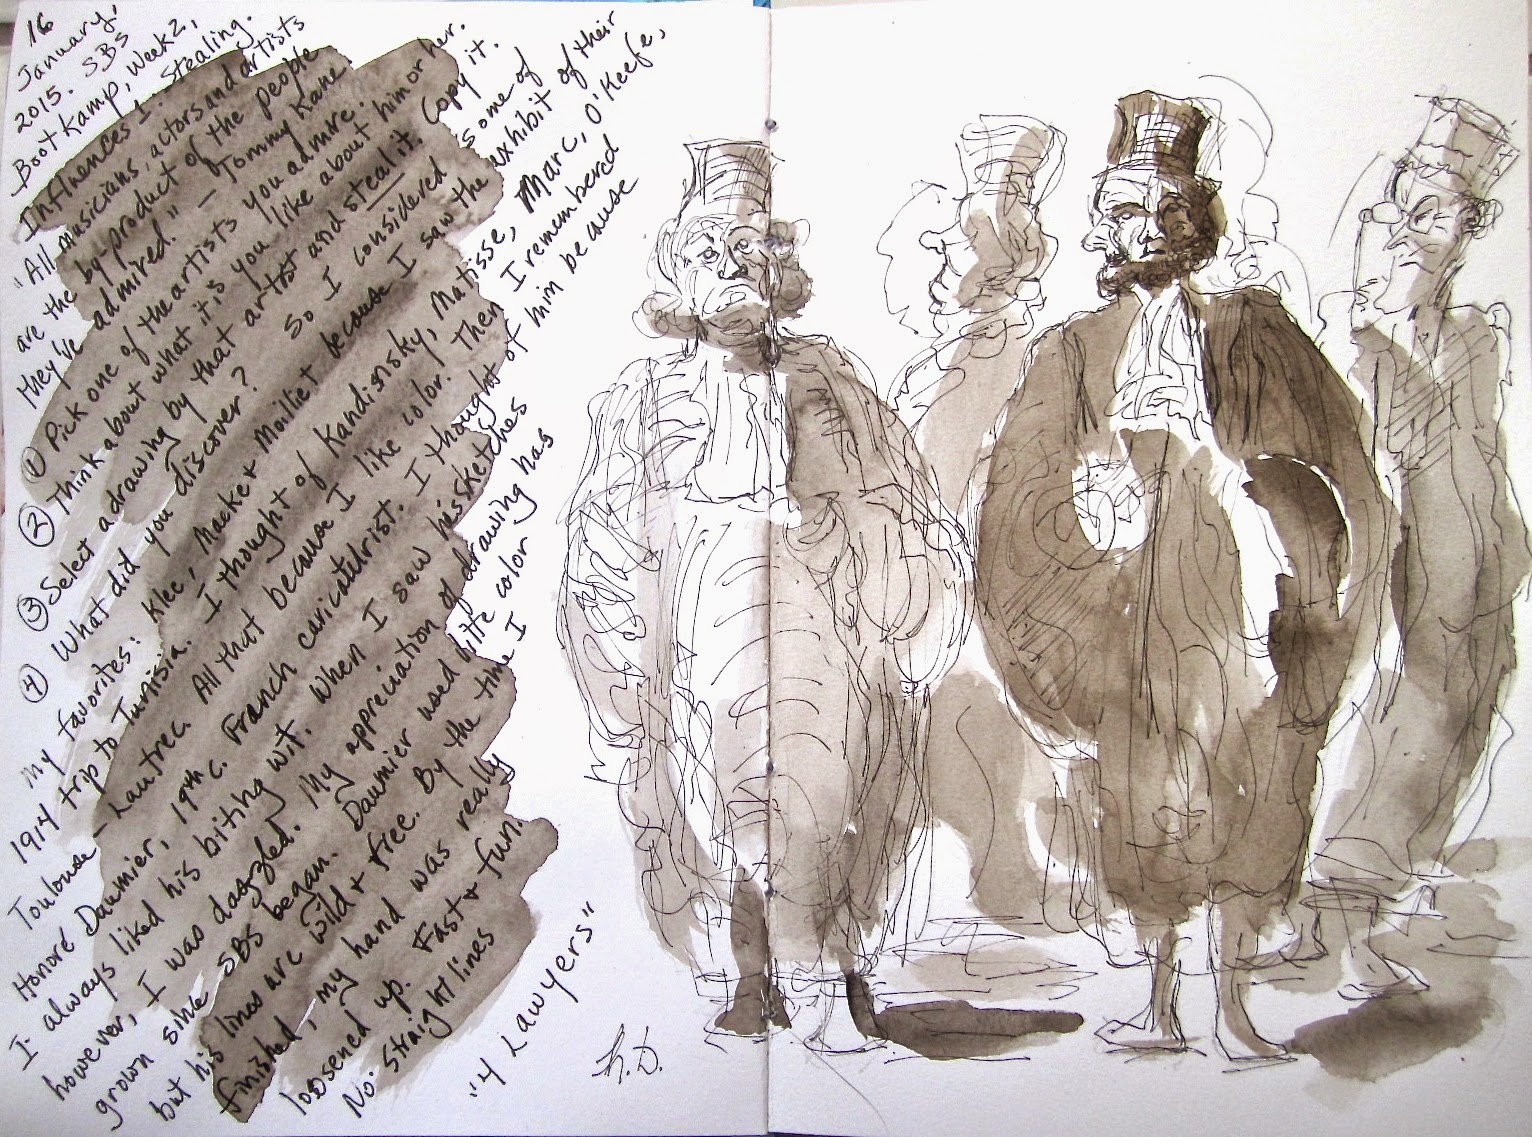 16
January,
2015. SBS
Boot Kamp, Week 2,
Influences 1. Stealing.
"All musicians, actors and artists
are the by-product of the people
they've admired." — Tommy Kane
① Pick one of the artists you admire.
② Think about what it is you like about him or her.
③ Select a drawing by that artist and steal it. Copy it.
④ What did you discover? So I considered some of
My favorites: Klee, Macke & Moillet because I saw the exhibit of their
1914 trip to Tunisia. I thought of Kandisnsky, Matisse, Marc, O'Keefe,
Toulouse-Lautrec. All that because I like color. Then I remembered
Honoré Daumier, 19th c. Franch caricaturist. I thought of him because
I always liked his biting wit. When I saw his sketches
however, I was dazzled. My appreciation of drawing has
grown sinse SBS began. Daumier used little color
but his lines are wild & free. By the time I
finished, my hand was really
loosened up. Fast & fun.
No straight lines
"4 Lawyers"